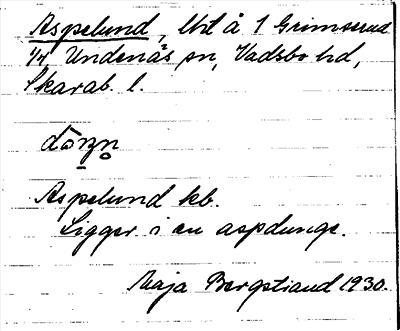 Aspelund, lht å 1 Grimserud
1/4, Undenås sn, Vadsbo hd,
Skarab. l.
Aspelund kb.
Ligger i en aspdunge.
Maja Bergstrand 1930.